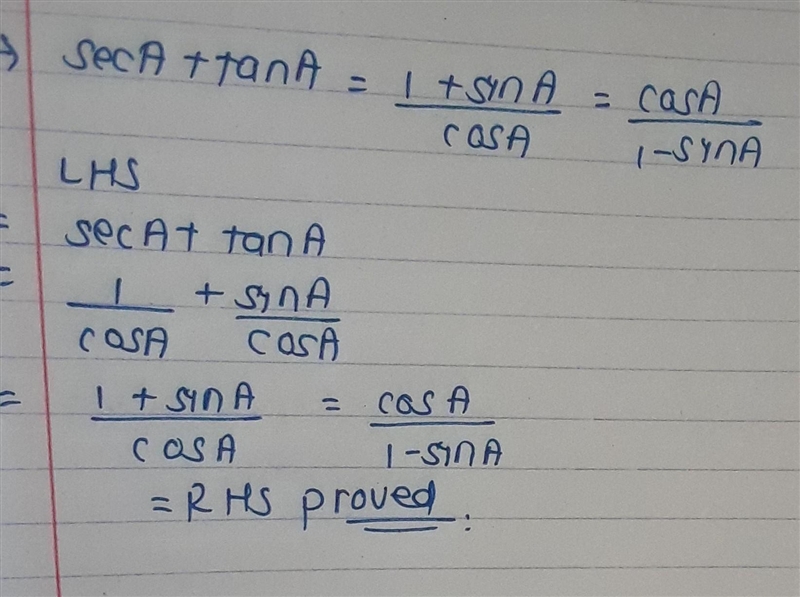 ⇒ secA + tanA = (1 + synA)/(cosA) = (cosA)/(1-synA)
LHS
= secA + tanA
= 1/(cosA) + (synA)/(cosA)
= (1 + synA)/(cosA) = (cosA)/(1-synA)
= RHS proved.